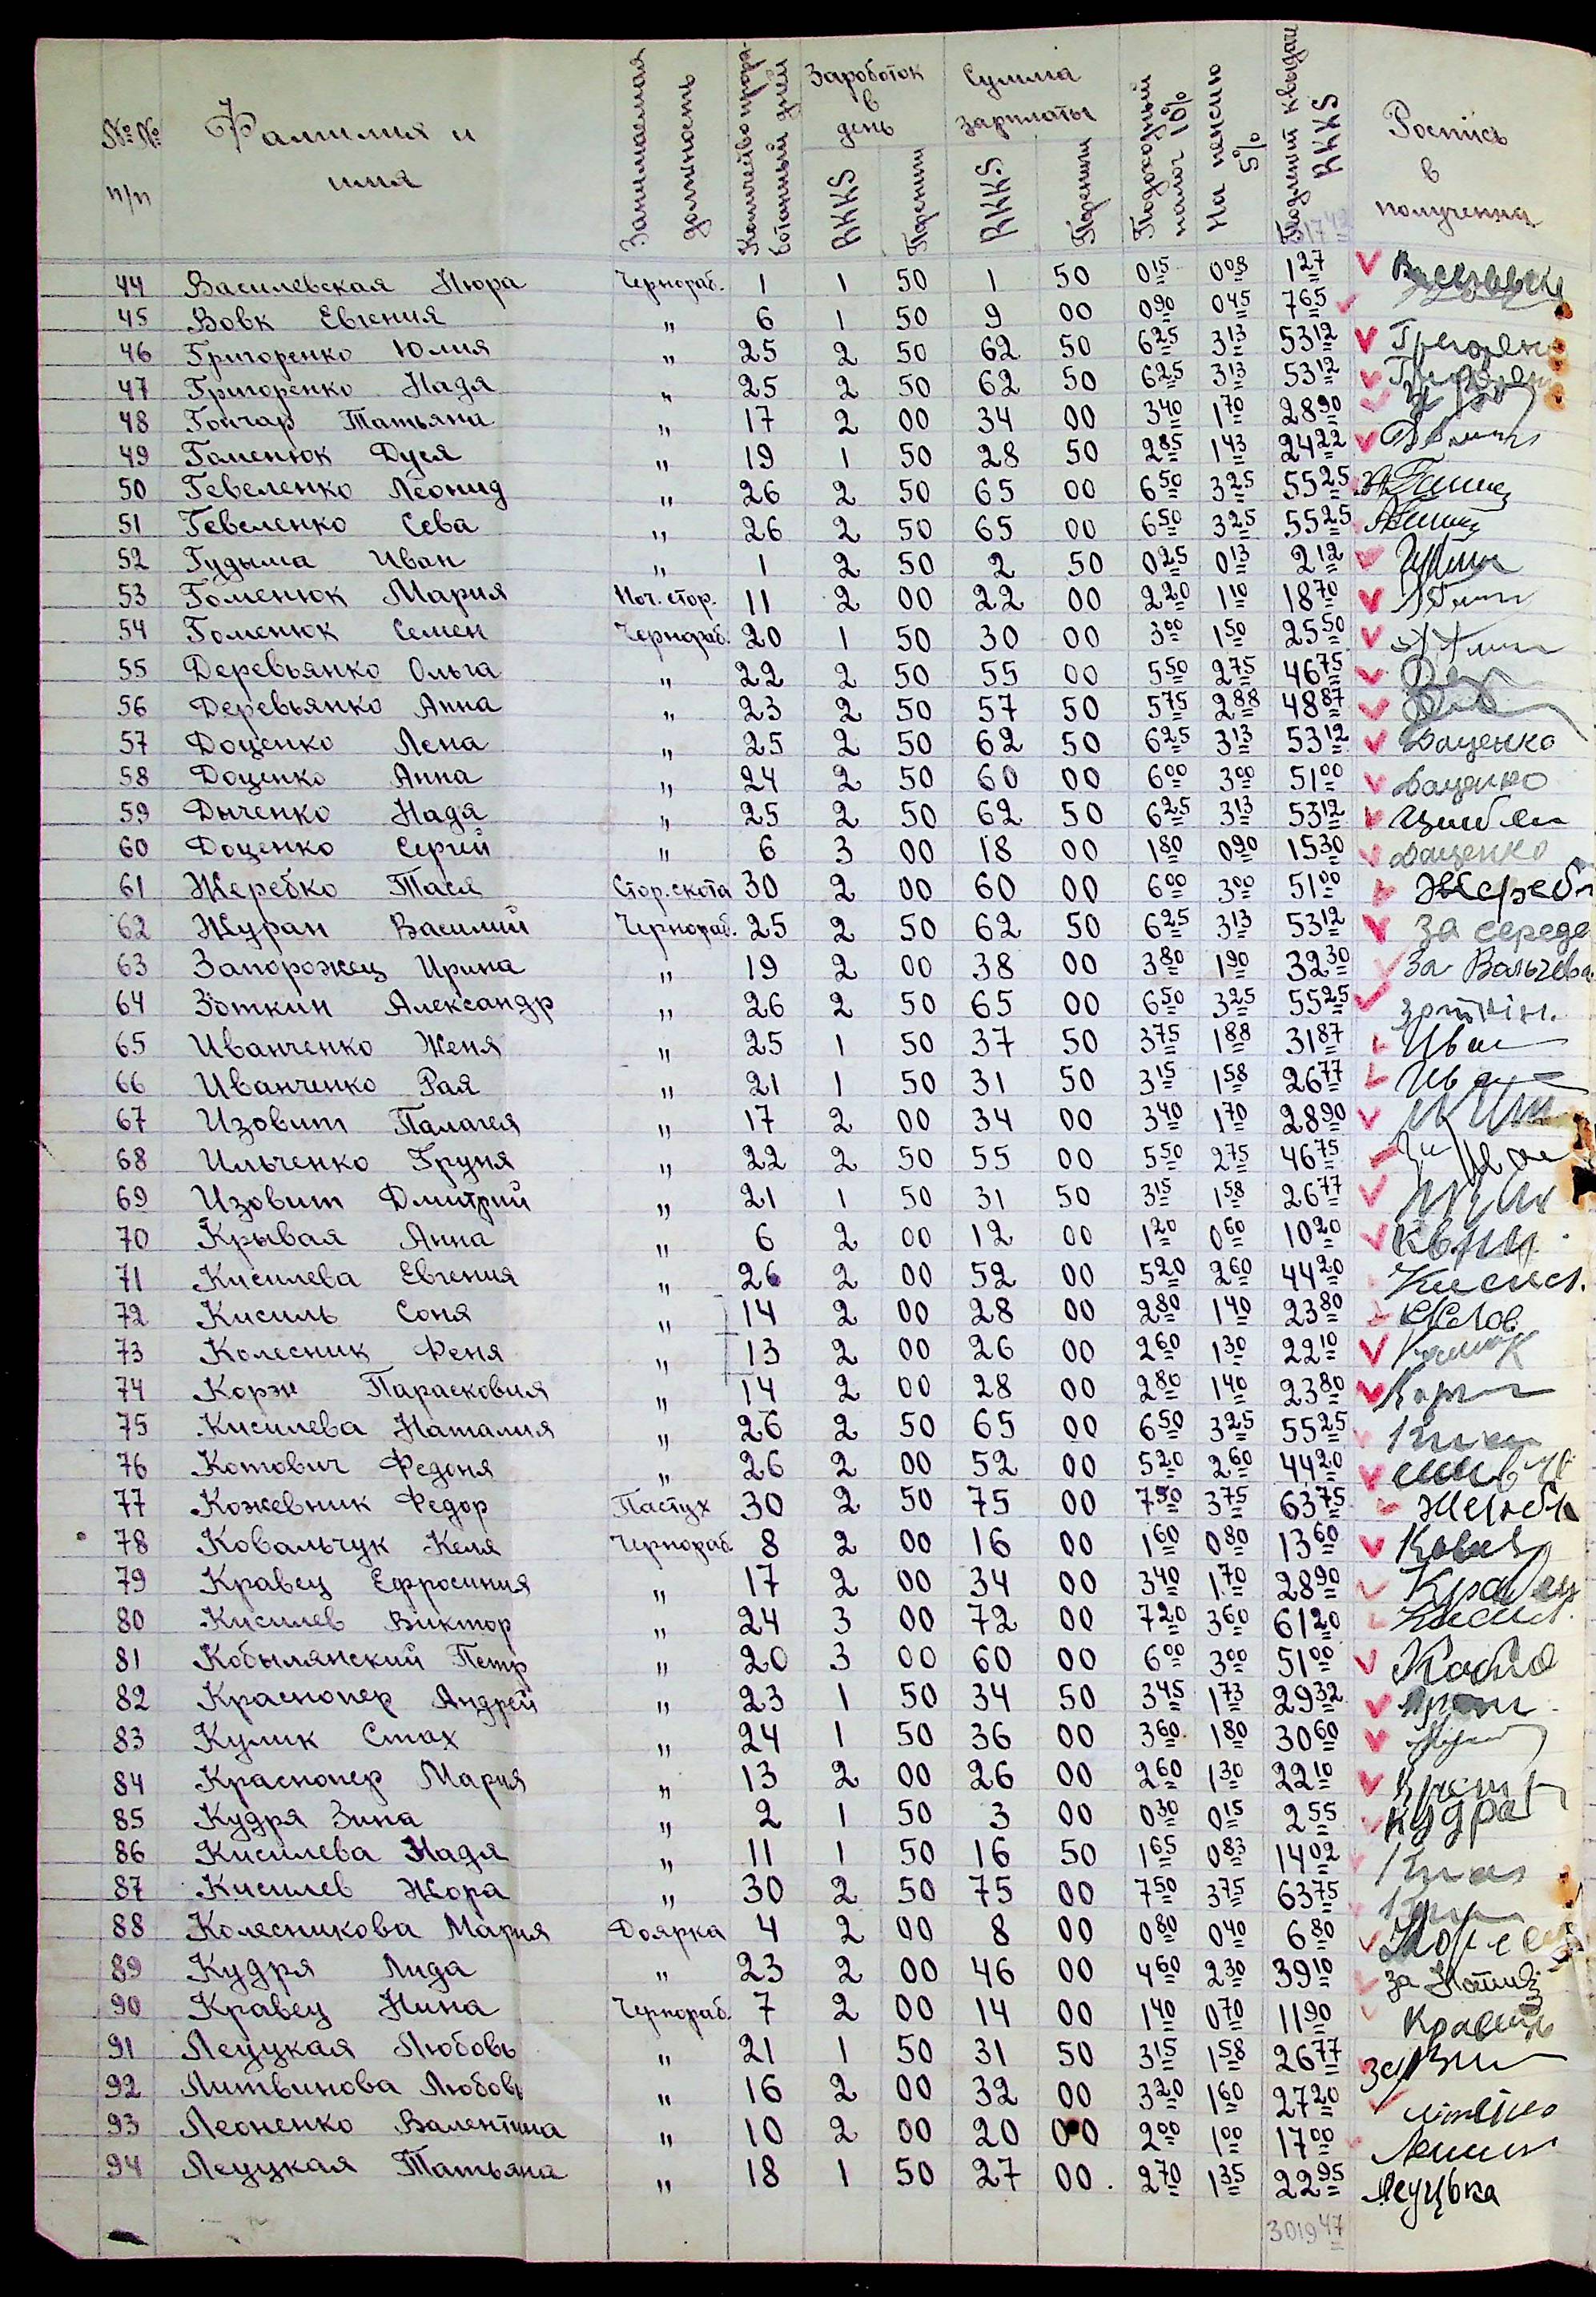 №№ п/п Фамилия и имя Занимаемая должность Количество проработанных дней Заработок в день RKKS Пфениги Сумма зарплаты RKKS Пфениги Подоходный налог 10% На пенсию 5% Подлежит к выдаче RKKS Роспись в получении
44 Василевская Нюра Чернораб. 1 1 50 1 50 0 15 0 08 1 27
45 Вовк Евгения " 6 1 50 9 00 0 90 0 45 7 65
46 Григоренко Юлия " 25 2 50 62 50 6 25 3 13 53 12
47 Григоренко Надя " 25 2 50 62 50 6 25 3 13 53 12
48 Гончар Татьяна " 17 2 00 34 00 3 40 1 70 28 90
49 Гоменюк Дуся " 19 1 50 28 50 2 85 1 43 24 22
50 Гевеленко Леонид " 26 2 50 65 00 6 50 3 25 55 25
51 Гевеленко Сева " 26 2 50 65 00 6 50 3 25 55 25
52 Гудыма Иван " 1 2 50 2 50 0 25 0 13 2 12
53 Гоменюк Мария Ноч. стор. 11 2 00 22 00 2 20 1 10 18 70
54 Гоменюк Семен Чернораб. 20 1 50 30 00 3 00 1 50 25 50
55 Деревьянко Ольга " 22 2 50 55 00 5 50 2 75 46 75
56 Деревьянко Анна " 23 2 50 57 50 5 75 2 88 48 87
57 Доценко Лена " 25 2 50 62 50 6 25 3 13 53 12 Даценко
58 Доценко Анна " 24 2 50 60 00 6 00 3 00 51 00 Даценко
59 Дыченко Надя " 25 2 50 62 50 6 25 3 13 53 12
60 Доценко Сергей " 6 3 00 18 00 1 80 0 90 15 30 Даценко
61 Жеребко Тася Стор. скота 30 2 00 60 00 6 00 3 00 51 00
62 Журан Василий Чернораб. 25 2 50 62 50 6 25 3 13 53 12 За середе
63 Запорожец Ирина " 19 2 00 38 00 3 80 1 90 32 30 За Вальчева
64 Зоткин Александр " 26 2 50 65 00 6 50 3 25 55 25
65 Иванченко Женя " 25 1 50 37 50 3 75 1 88 31 87
66 Иванченко Рая " 21 1 50 31 50 3 15 1 58 26 77
67 Изовит Палагея " 17 2 00 34 00 3 40 1 70 28 90
68 Ильченко Груня " 22 2 50 55 00 5 50 2 75 46 75
69 Изовит Дмитрий " 21 1 50 31 50 3 15 1 58 26 77
70 Крывая Анна " 6 2 00 12 00 1 20 0 60 10 20
71 Кисилева Евгения " 26 2 00 52 00 5 20 2 60 44 20
72 Кисиль Соня " 14 2 00 28 00 2 80 1 40 23 80
73 Колесник Феня " 13 2 00 26 00 2 60 1 30 22 10
74 Корж Парасковия " 14 2 00 28 00 2 80 1 40 23 80
75 Кисилева Наталия " 26 2 50 65 00 6 50 3 25 55 25
76 Котович Федоня " 26 2 00 52 00 5 20 2 60 44 20
77 Кожевник Федор Пастух 30 2 50 75 00 7 50 3 75 63 75
78 Ковальчук Келя Чернораб 8 2 00 16 00 1 60 0 80 13 60
79 Кравец Ефросиния " 17 2 00 34 00 3 40 1 70 28 90
80 Кисилев Виктор " 24 3 00 72 00 7 20 3 60 61 20
81 Кобылянский Петр " 20 3 00 60 00 6 00 3 00 51 00
82 Краснопер Андрей " 23 1 50 34 50 3 45 1 73 29 32
83 Кулик Стах " 24 1 50 36 00 3 60 1 80 30 60
84 Краснопер Мария " 13 2 00 26 00 2 60 1 30 22 10
85 Кудря Зина " 2 1 50 3 00 0 30 0 15 2 55 Кудра
86 Кисилева Надя " 11 1 50 16 50 1 65 0 83 14 02
87 Кисилев Жора " 30 2 50 75 00 7 50 3 75 63 75
88 Колесникова Мария Доярка 4 2 00 8 00 0 80 0 40 6 80
89 Кудря Лида " 23 2 00 46 00 4 60 2 30 39 10
90 Кравец Нина Чернораб. 7 2 00 14 00 1 40 0 70 11 90
91 Леуцкая Любовь " 21 1 50 31 50 3 15 1 58 26 77
92 Литвинова Любовь " 16 2 00 32 00 3 20 1 60 27 20
93 Леоненко Валентина " 10 2 00 20 00 2 00 1 00 17 00
94 Леуцкая Татьяна " 18 1 50 27 00 2 70 1 35 22 95 Леуцька
3019 47